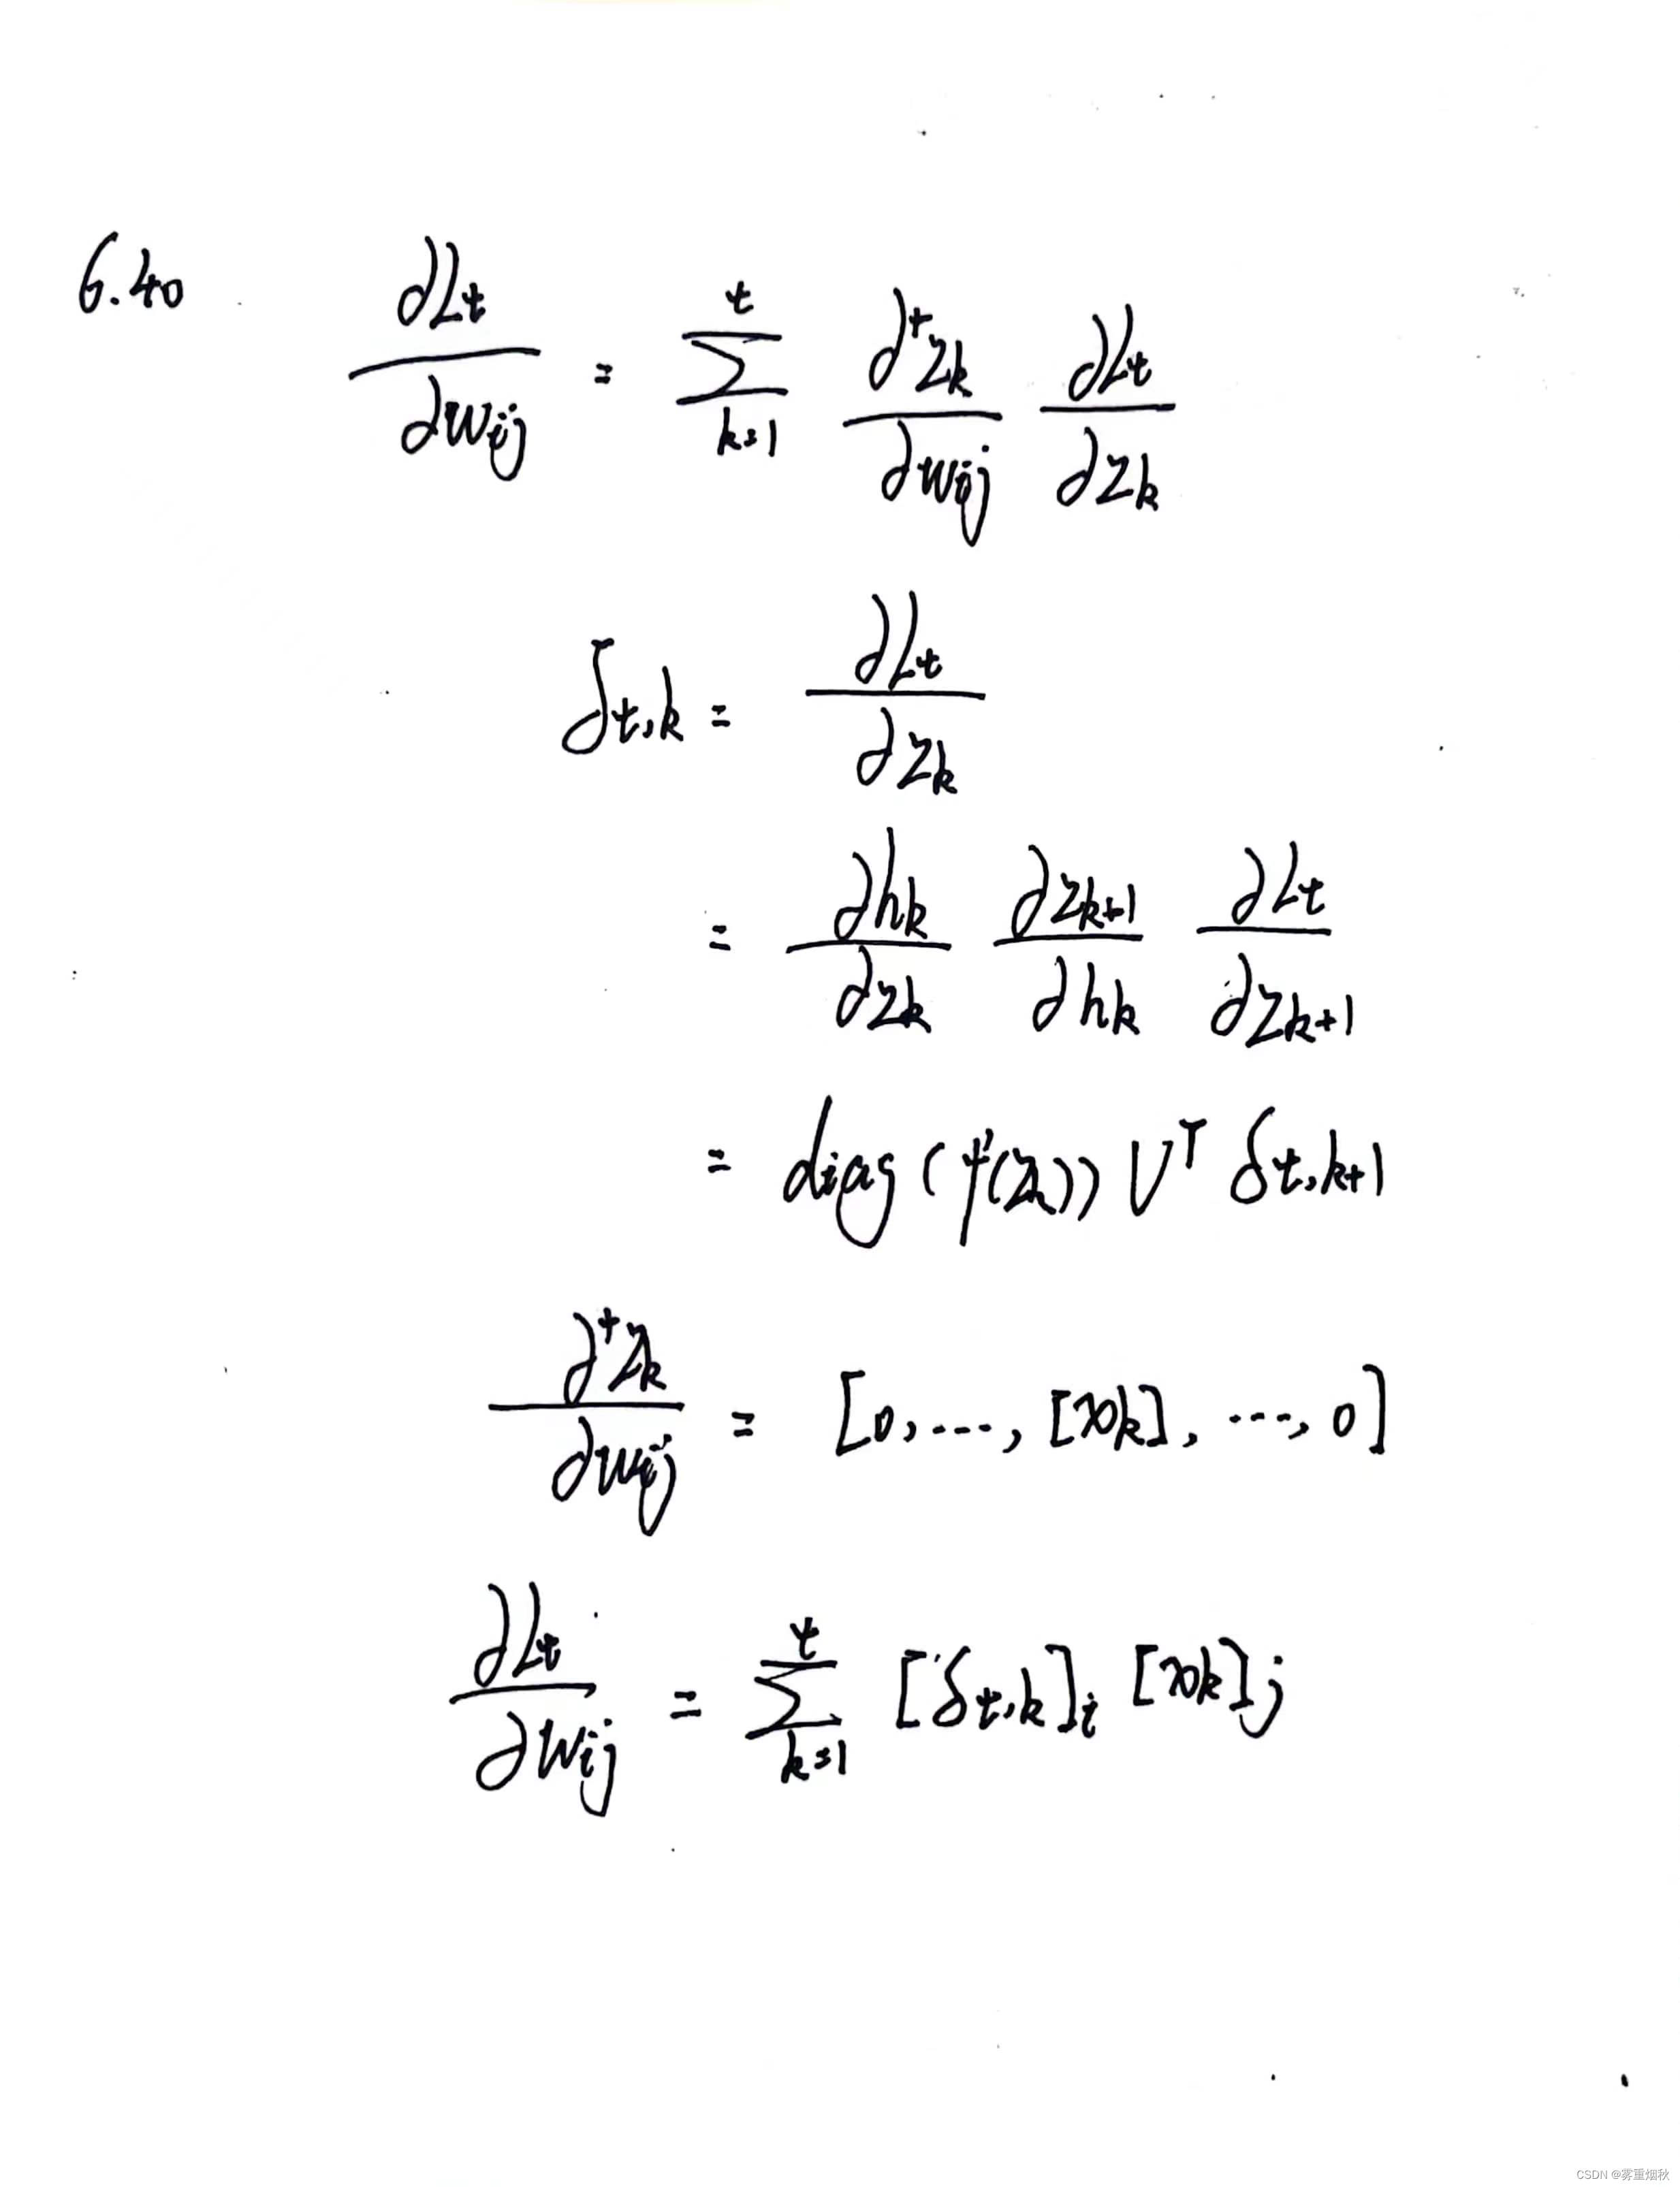 6.40 ∂Lt/∂wij = Σ_{k=1}^{t} ∂⁺zk/∂wij ∂Lt/∂zk
δt,k = ∂Lt/∂zk
= ∂hk/∂zk ∂zk+1/∂hk ∂Lt/∂zk+1
= diag(f'(zk)) Uᵀ δt,k+1
∂⁺zk/∂wij = [0, ..., [xk], ..., 0]
∂Lt/∂wij = Σ_{k=1}^{t} [δt,k]i [xk]j
CSDN @雾重烟秋